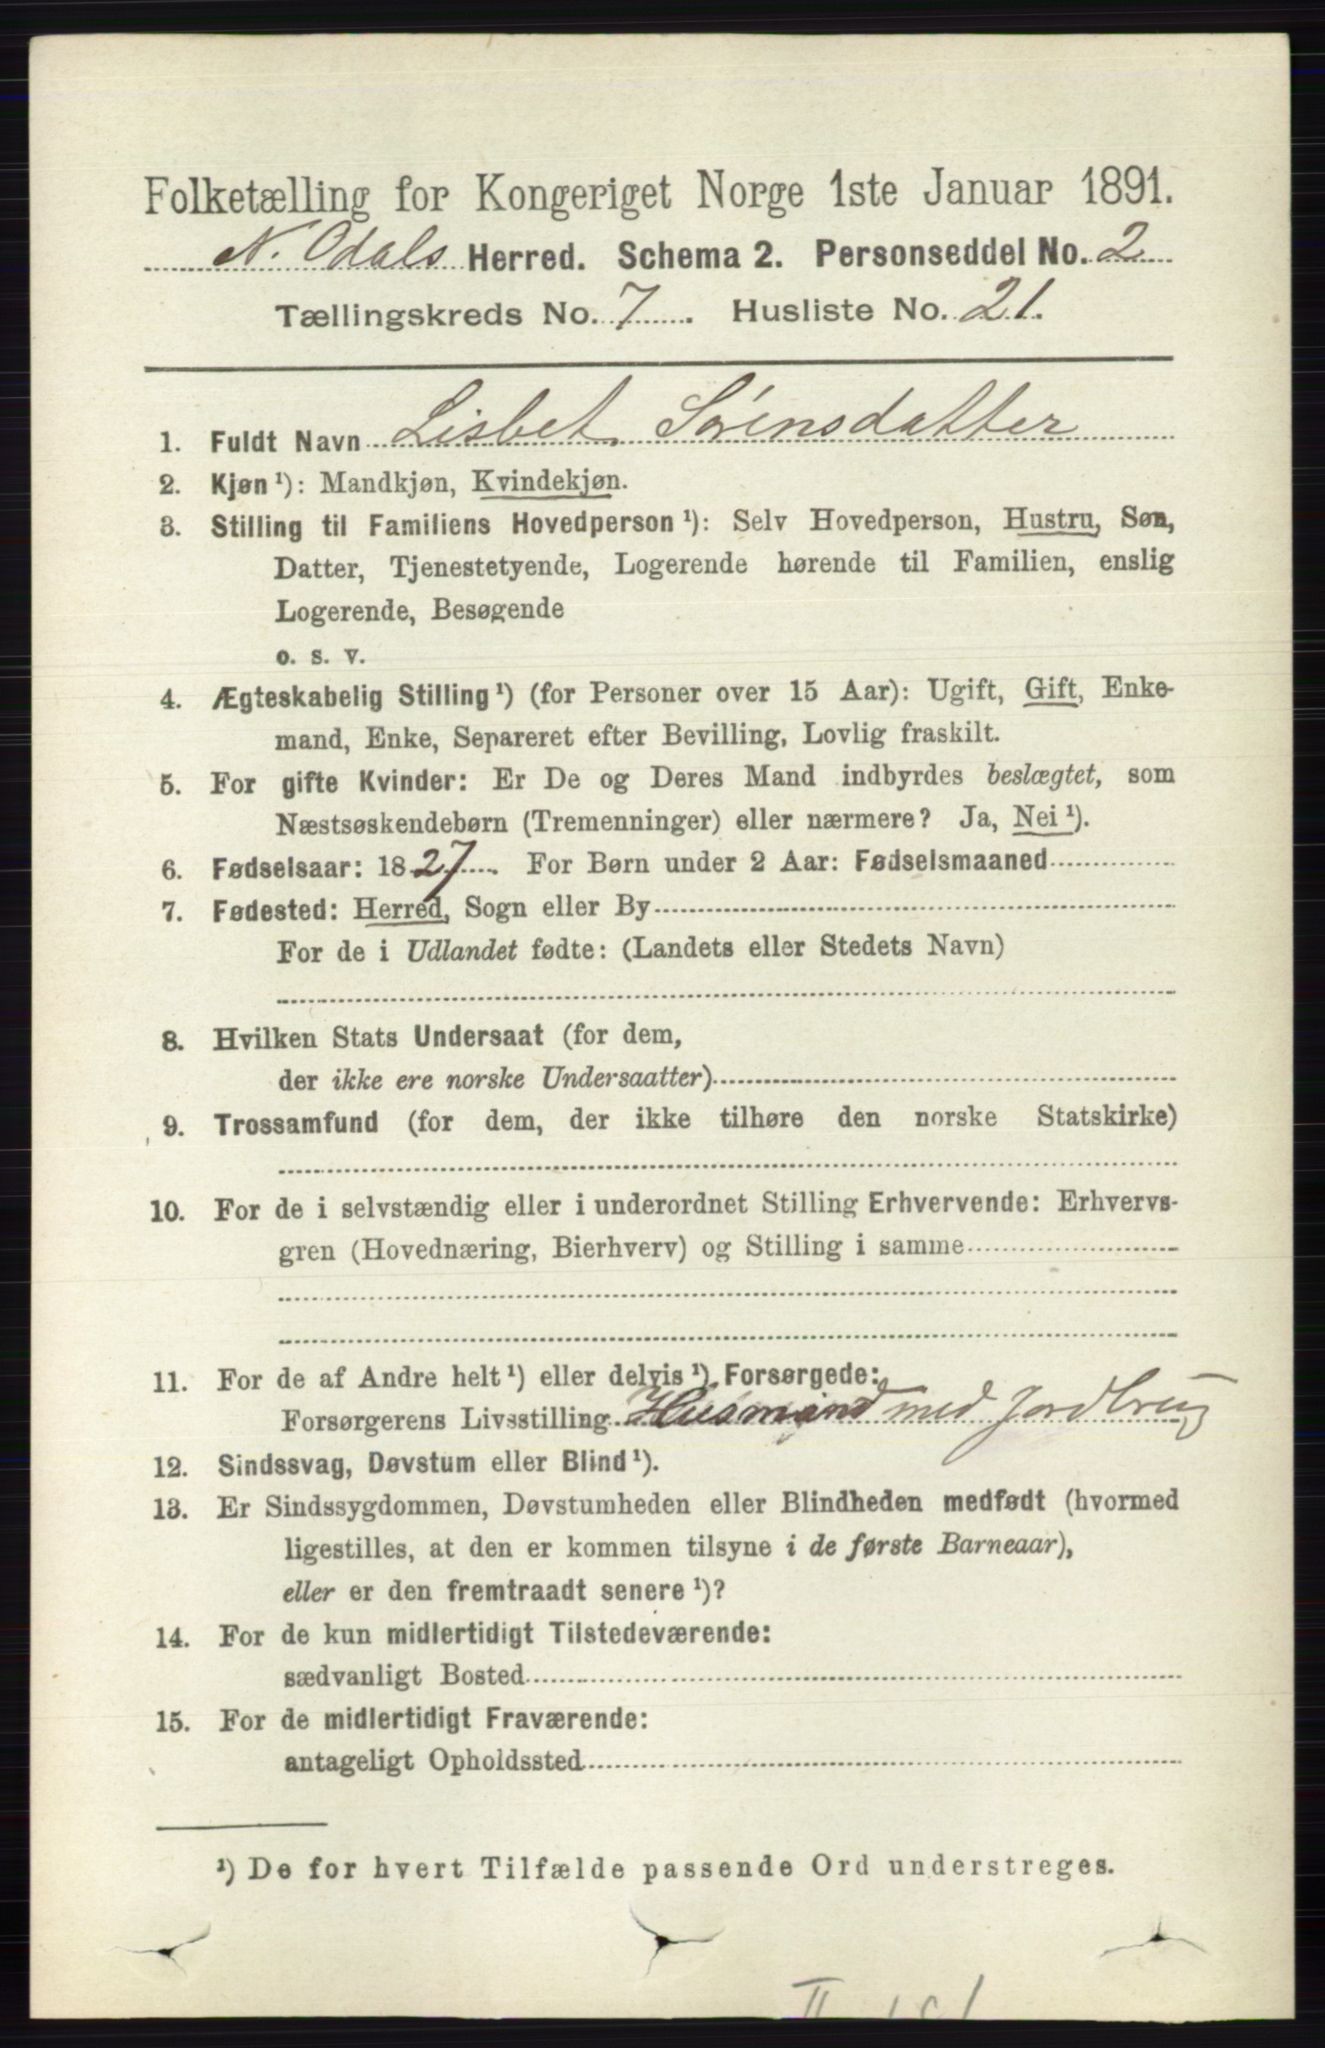 Folketælling for Kongeriget Norge 1ste Januar 1891.
N. Odals Herred. Schema 2. Personseddel No. 2
Tællingskreds No. 7. Husliste No. 21.
1. Fuldt Navn Lisbet Sørensdatter
2. Kjøn¹): Mandkjøn, Kvindekjøn.
3. Stilling til Familiens Hovedperson¹): Selv Hovedperson, Hustru, Søn,
Datter, Tjenestetyende, Logerende hørende til Familien, enslig
Logerende, Besøgende
o. s. v.
4. Ægteskabelig Stilling¹) (for Personer over 15 Aar): Ugift, Gift, Enke-
mand, Enke, Separeret efter Bevilling, Lovlig fraskilt.
5. For gifte Kvinder: Er De og Deres Mand indbyrdes beslægtet, som
Næstsøskendebørn (Tremenninger) eller nærmere? Ja, Nei¹).
6. Fødselsaar: 1827. For Børn under 2 Aar: Fødselsmaaned
7. Fødested: Herred, Sogn eller By
For de i Udlandet fødte: (Landets eller Stedets Navn)
8. Hvilken Stats Undersaat (for dem,
der ikke ere norske Undersaatter)
9. Trossamfund (for dem, der ikke tilhøre den norske Statskirke)
10. For de i selvstændig eller i underordnet Stilling Erhvervende: Erhvervs-
gren (Hovednæring, Bierhverv) og Stilling i samme
11. For de af Andre helt¹) eller delvis¹) Forsørgede:
Forsørgerens Livsstilling Husmand med Jordbrug
12. Sindssvag, Døvstum eller Blind¹).
13. Er Sindssygdommen, Døvstumheden eller Blindheden medfødt (hvormed
ligestilles, at den er kommen tilsyne i de første Barneaar),
eller er den fremtraadt senere¹)?
14. For de kun midlertidigt Tilstedeværende:
sædvanligt Bosted
15. For de midlertidigt Fraværende:
antageligt Opholdssted
¹) De for hvert Tilfælde passende Ord understreges.